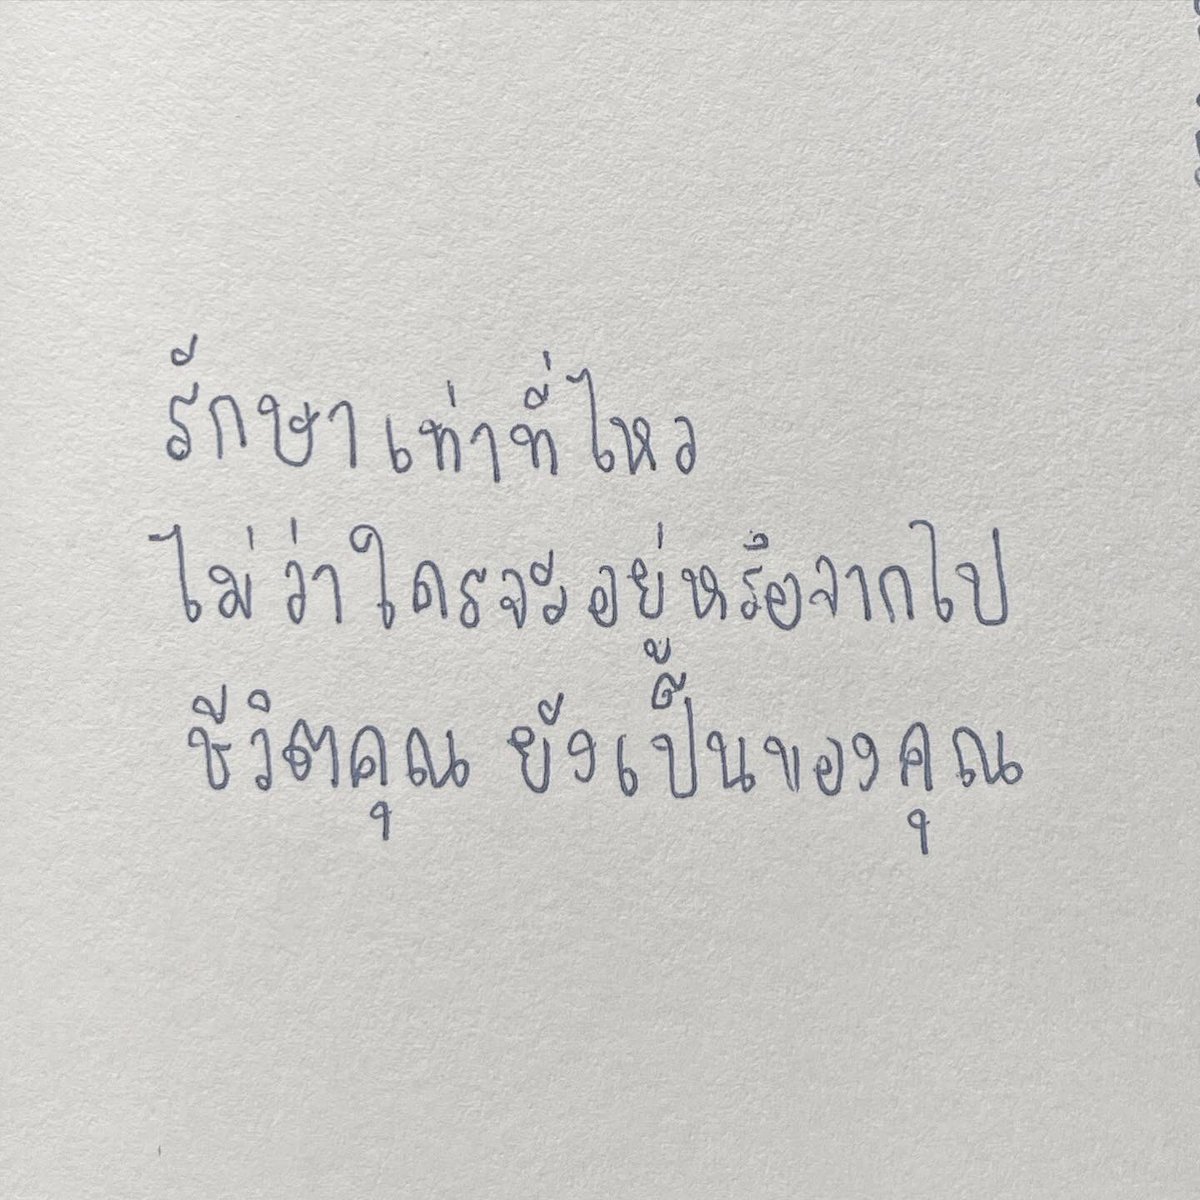 รักษาเท่าที่ไหว
ไม่ว่าใครจะอยู่หรือจากไป
ชีวิตคุณ ยังเป็นของคุณ